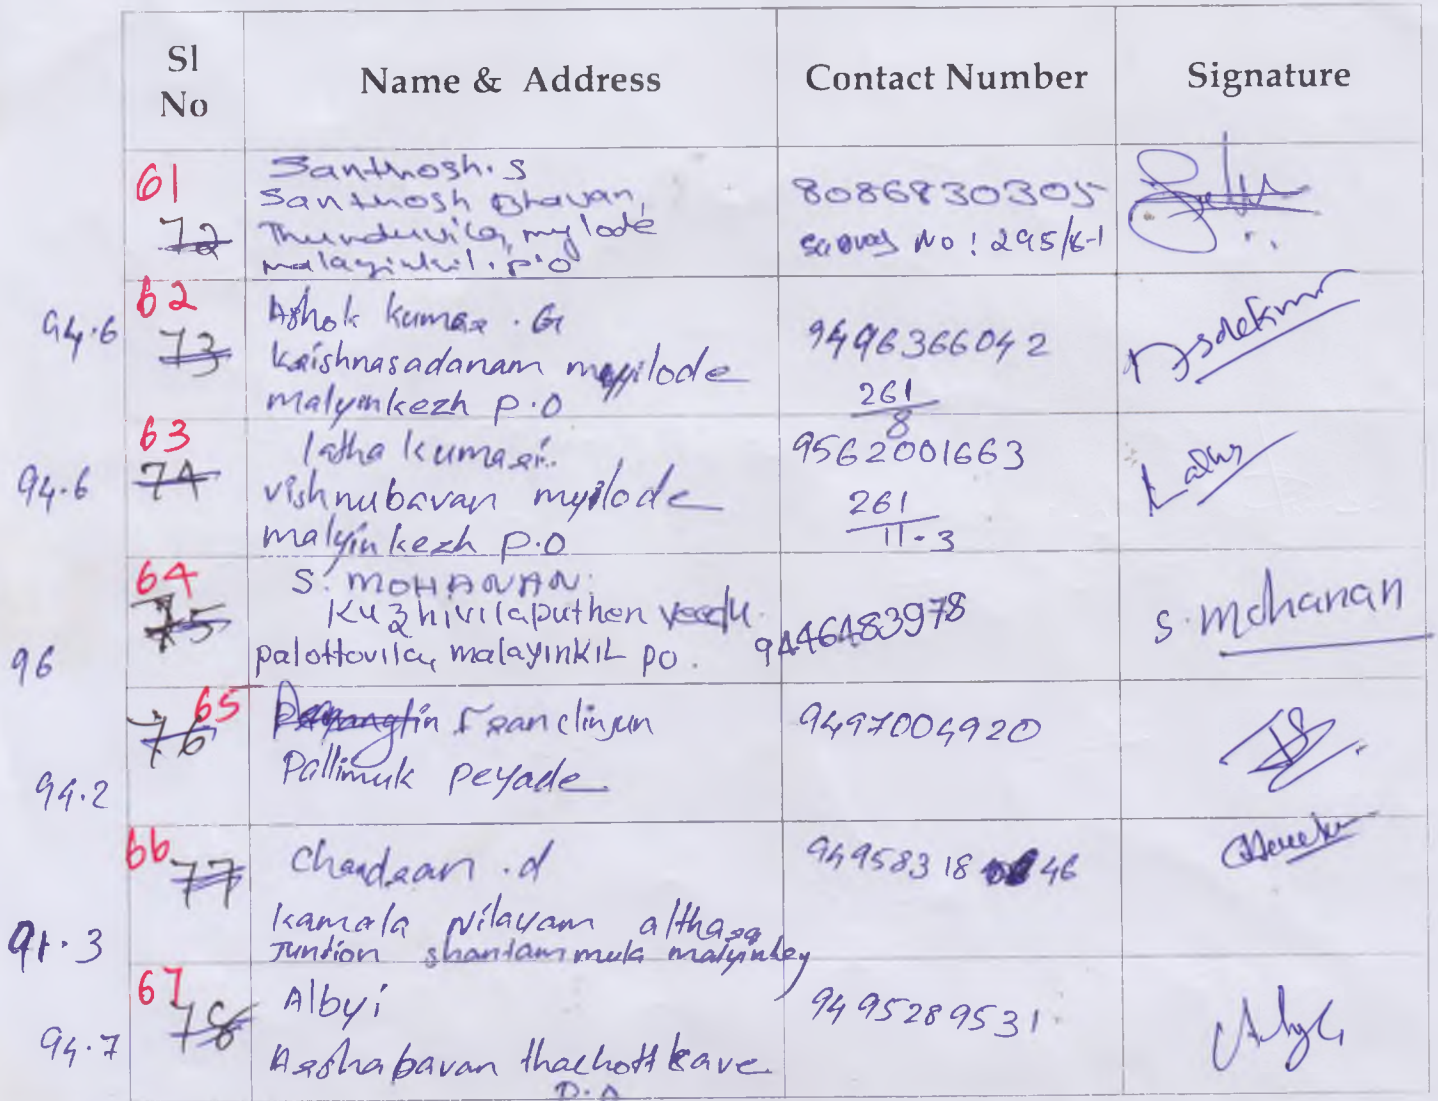 Sl No
Name & Address
Contact Number
Signature
61
72
Santhosh. S
Santhosh Bhavan,
Thunduvila, mylode
malayinkil. P.O
8086830305
No: 295/8-1
94.6
62
73
Ashok kumar . G
krishnasadanam mylode
malyinkezh P.O
9496366042
261
8
94.6
63
74
latha kumari.
vishnubavan mylode
malyinkezh P.O
9562001663
261
11-3
96
64
75
S. MOHANAN
Kuzhivilaputhen veedu
palottovila, malayinkil po.
9446483978
S. mohanan
94.2
65
76
Franclinjun
Pallimuk peyade
9497004920
91.3
66
77
Chandran . d
kamala Nilayam althara
Juntion shantammuk malyinkey
94958318 46
94.7
67
78
Albyi
Arshabavan thachottkave
P.O
9495289531